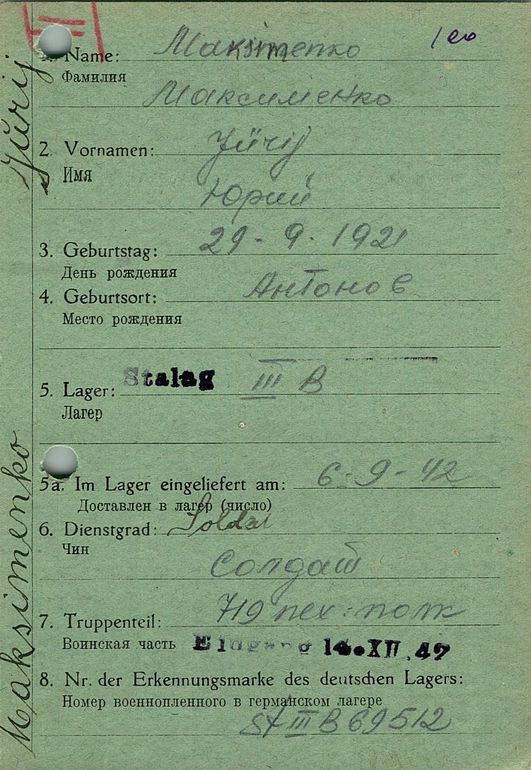 1. Name: Maksimenko 120
Фамилия
Максименко
2. Vornamen: Jürij
Имя
Юрий
3. Geburtstag: 29-9-1921
День рождения
4. Geburtsort: Антонов
Место рождения
5. Lager: Stalag III B
Лагер
5a. Im Lager eingeliefert am: 6-9-42
Доставлен в лагер (число)
6. Dienstgrad: Soldat
Чин
Солдат
7. Truppenteil: 719 пех: полк
Воинская часть Eingang 14.XII.42
8. Nr. der Erkennungsmarke des deutschen Lagers:
Номер военнопленного в германском лагере
St III B 69512
Maksimenko Jürij